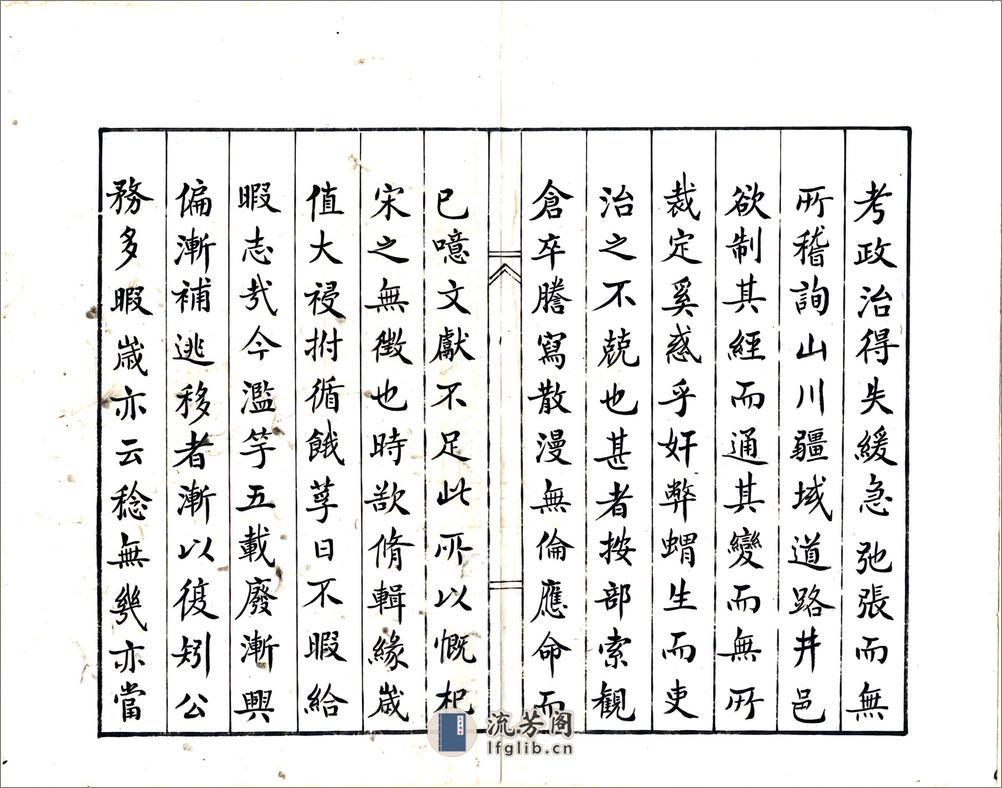 考政治得失緩急弛張而無
所稽詢山川疆域道路井邑
欲制其經而通其變而無所
裁定奚惑乎奸弊蝟生而吏
治之不兢也甚者按部索觀
倉卒謄寫散漫無倫應命而
已噫文獻不足此所以慨杞
宋之無徵也時欲脩輯緣歲
值大祲拊循餓莩日不暇給
暇志㢤今濫竽五載廢漸興
偏漸補逃移者漸以復矧公
務多暇歲亦云稔無幾亦當
流芳阁
lfglib.cn